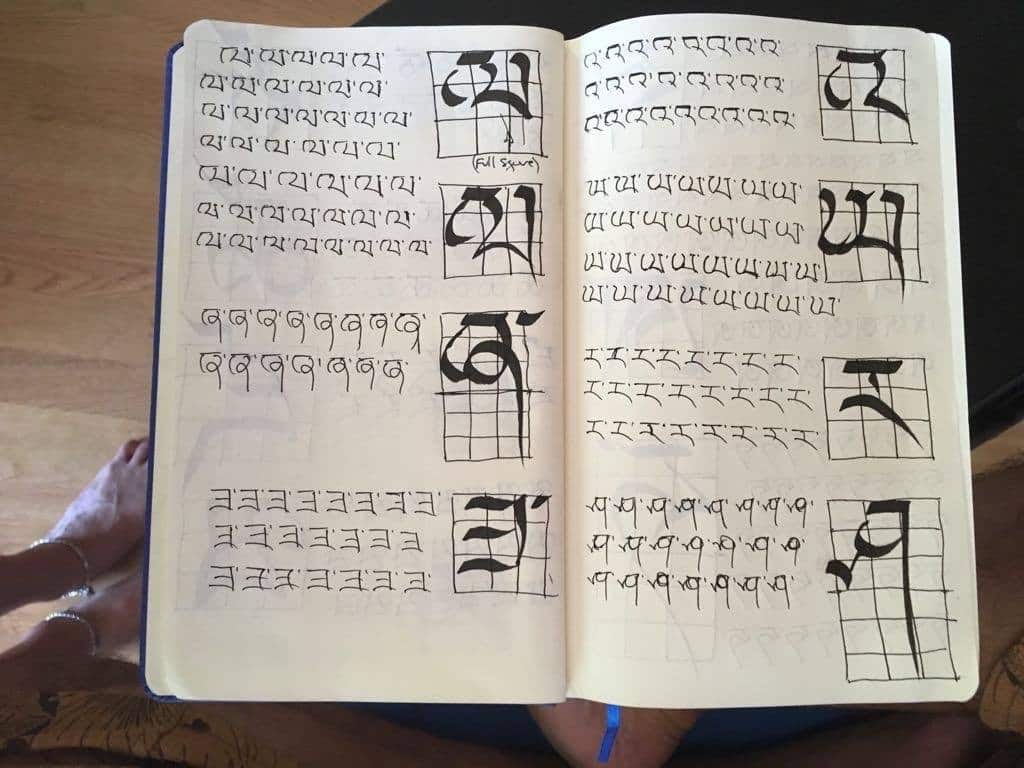 ལ་ལ་ལ་ལ་ལ་
ལ་ལ་ལ་ལ་ལ་ལ་
ལ་ལ་ལ་ལ་ལ་ལ་ལ་
ལ་ལ་ལ་ལ་ལ་ལ་
ལ
(Full Square)
ལ་ལ་ལ་ལ་ལ་ལ་
ལ་ལ་ལ་ལ་ལ་ལ་ལ་
ལ་ལ་ལ་ལ་ལ་ལ་ལ་ལ་
ལ
ཞ་ཞ་ཞ་ཞ་ཞ་ཞ་ཞ་ཞ་
ཞ་ཞ་ཞ་ཞ་ཞ་ཞ་ཞ་
ཞ་
ཟ་ཟ་ཟ་ཟ་ཟ་ཟ་ཟ་ཟ་
ཟ་ཟ་ཟ་ཟ་ཟ་ཟ་ཟ་
ཟ་ཟ་ཟ་ཟ་ཟ་ཟ་ཟ་
ཟ་
འ་འ་འ་འ་འ་འ་འ་འ་
འ་འ་འ་འ་འ་འ་འ་འ་
འ་འ་འ་འ་འ་འ་འ་འ་
འ
ཡ་ཡ་ཡ་ཡ་ཡ་ཡ་ཡ་ཡ་
ཡ་ཡ་ཡ་ཡ་ཡ་ཡ་ཡ་
ཡ་ཡ་ཡ་ཡ་ཡ་ཡ་ཡ་ཡ་
ཡ་ཡ་ཡ་ཡ་ཡ་ཡ་ཡ་ཡ་
ཡ
ར་ར་ར་ར་ར་ར་ར་ར་
ར་ར་ར་ར་ར་ར་ར་ར་
ར་ར་ར་ར་ར་ར་ར་ར་
ར
ཤ་ཤ་ཤ་ཤ་ཤ་ཤ་ཤ་ཤ་
ཤ་ཤ་ཤ་ཤ་ཤ་ཤ་ཤ་
ཤ་ཤ་ཤ་ཤ་ཤ་ཤ་ཤ་
ཤ